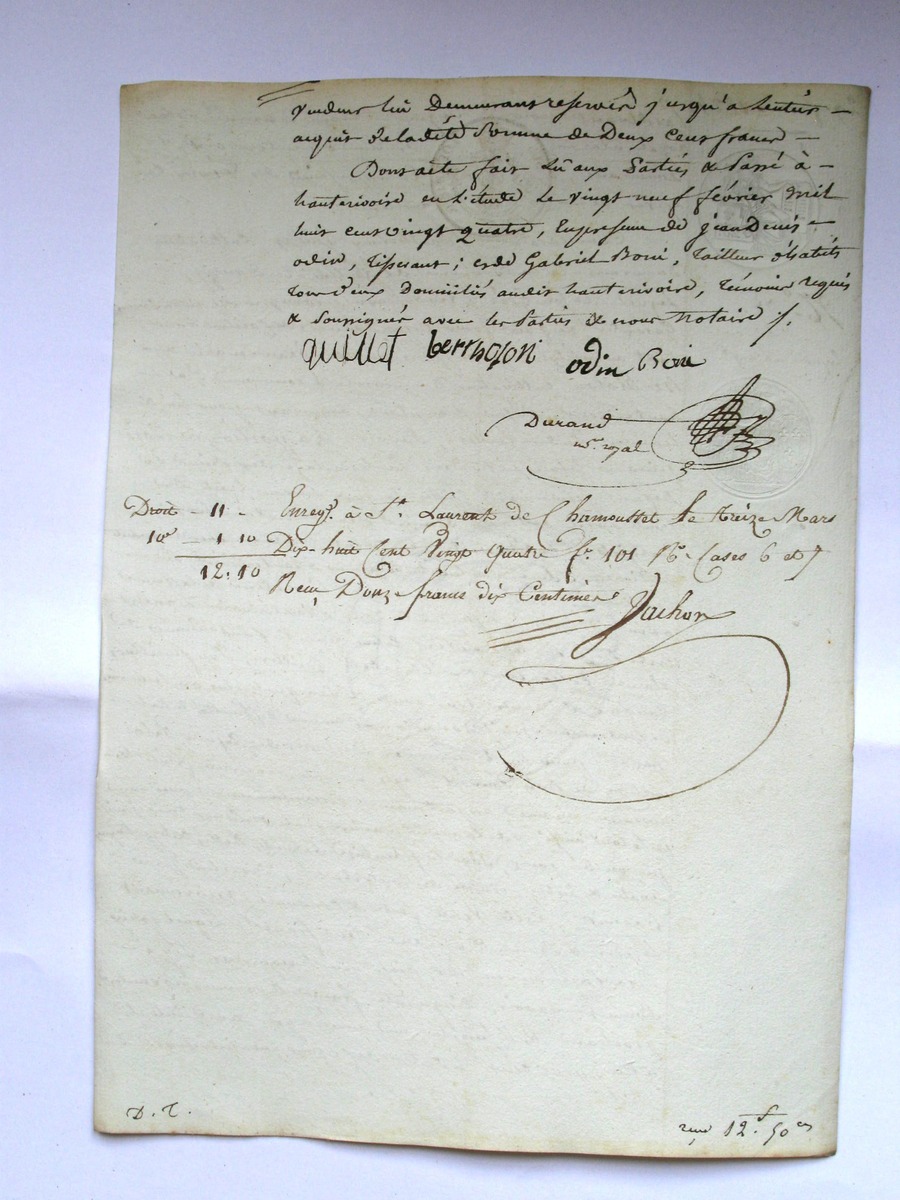 vendeur lui Demeurans reservés jusqu'a l'entier
acquit de ladite Somme de Deux cent francs
Dont acte fait Lû aux Parties & Passé à
hauterivoire en L'étude Le vingt neuf février mil
huit cent vingt quatre, En presence de jean Denis
odin, Tisserant; et de Gabriel Boni, Tailleur d'habits
tous deux Domiciliés audit hauterivoire, Témoins requis
& soussignés avec les Parties & nous Notaire ./.
quillet berthojon odin Boni
Durand
nre. royal
Droit - 11 -
10e - 1 10
12. 10
Enregt. à St. Laurent de Chamousset le treize Mars
Dix-huit Cent Vingt quatre fo. 101 Ro. Cases 6 et 7
Reçu Douze francs dix Centimes
D. T.
reçu 12 f 50 ces